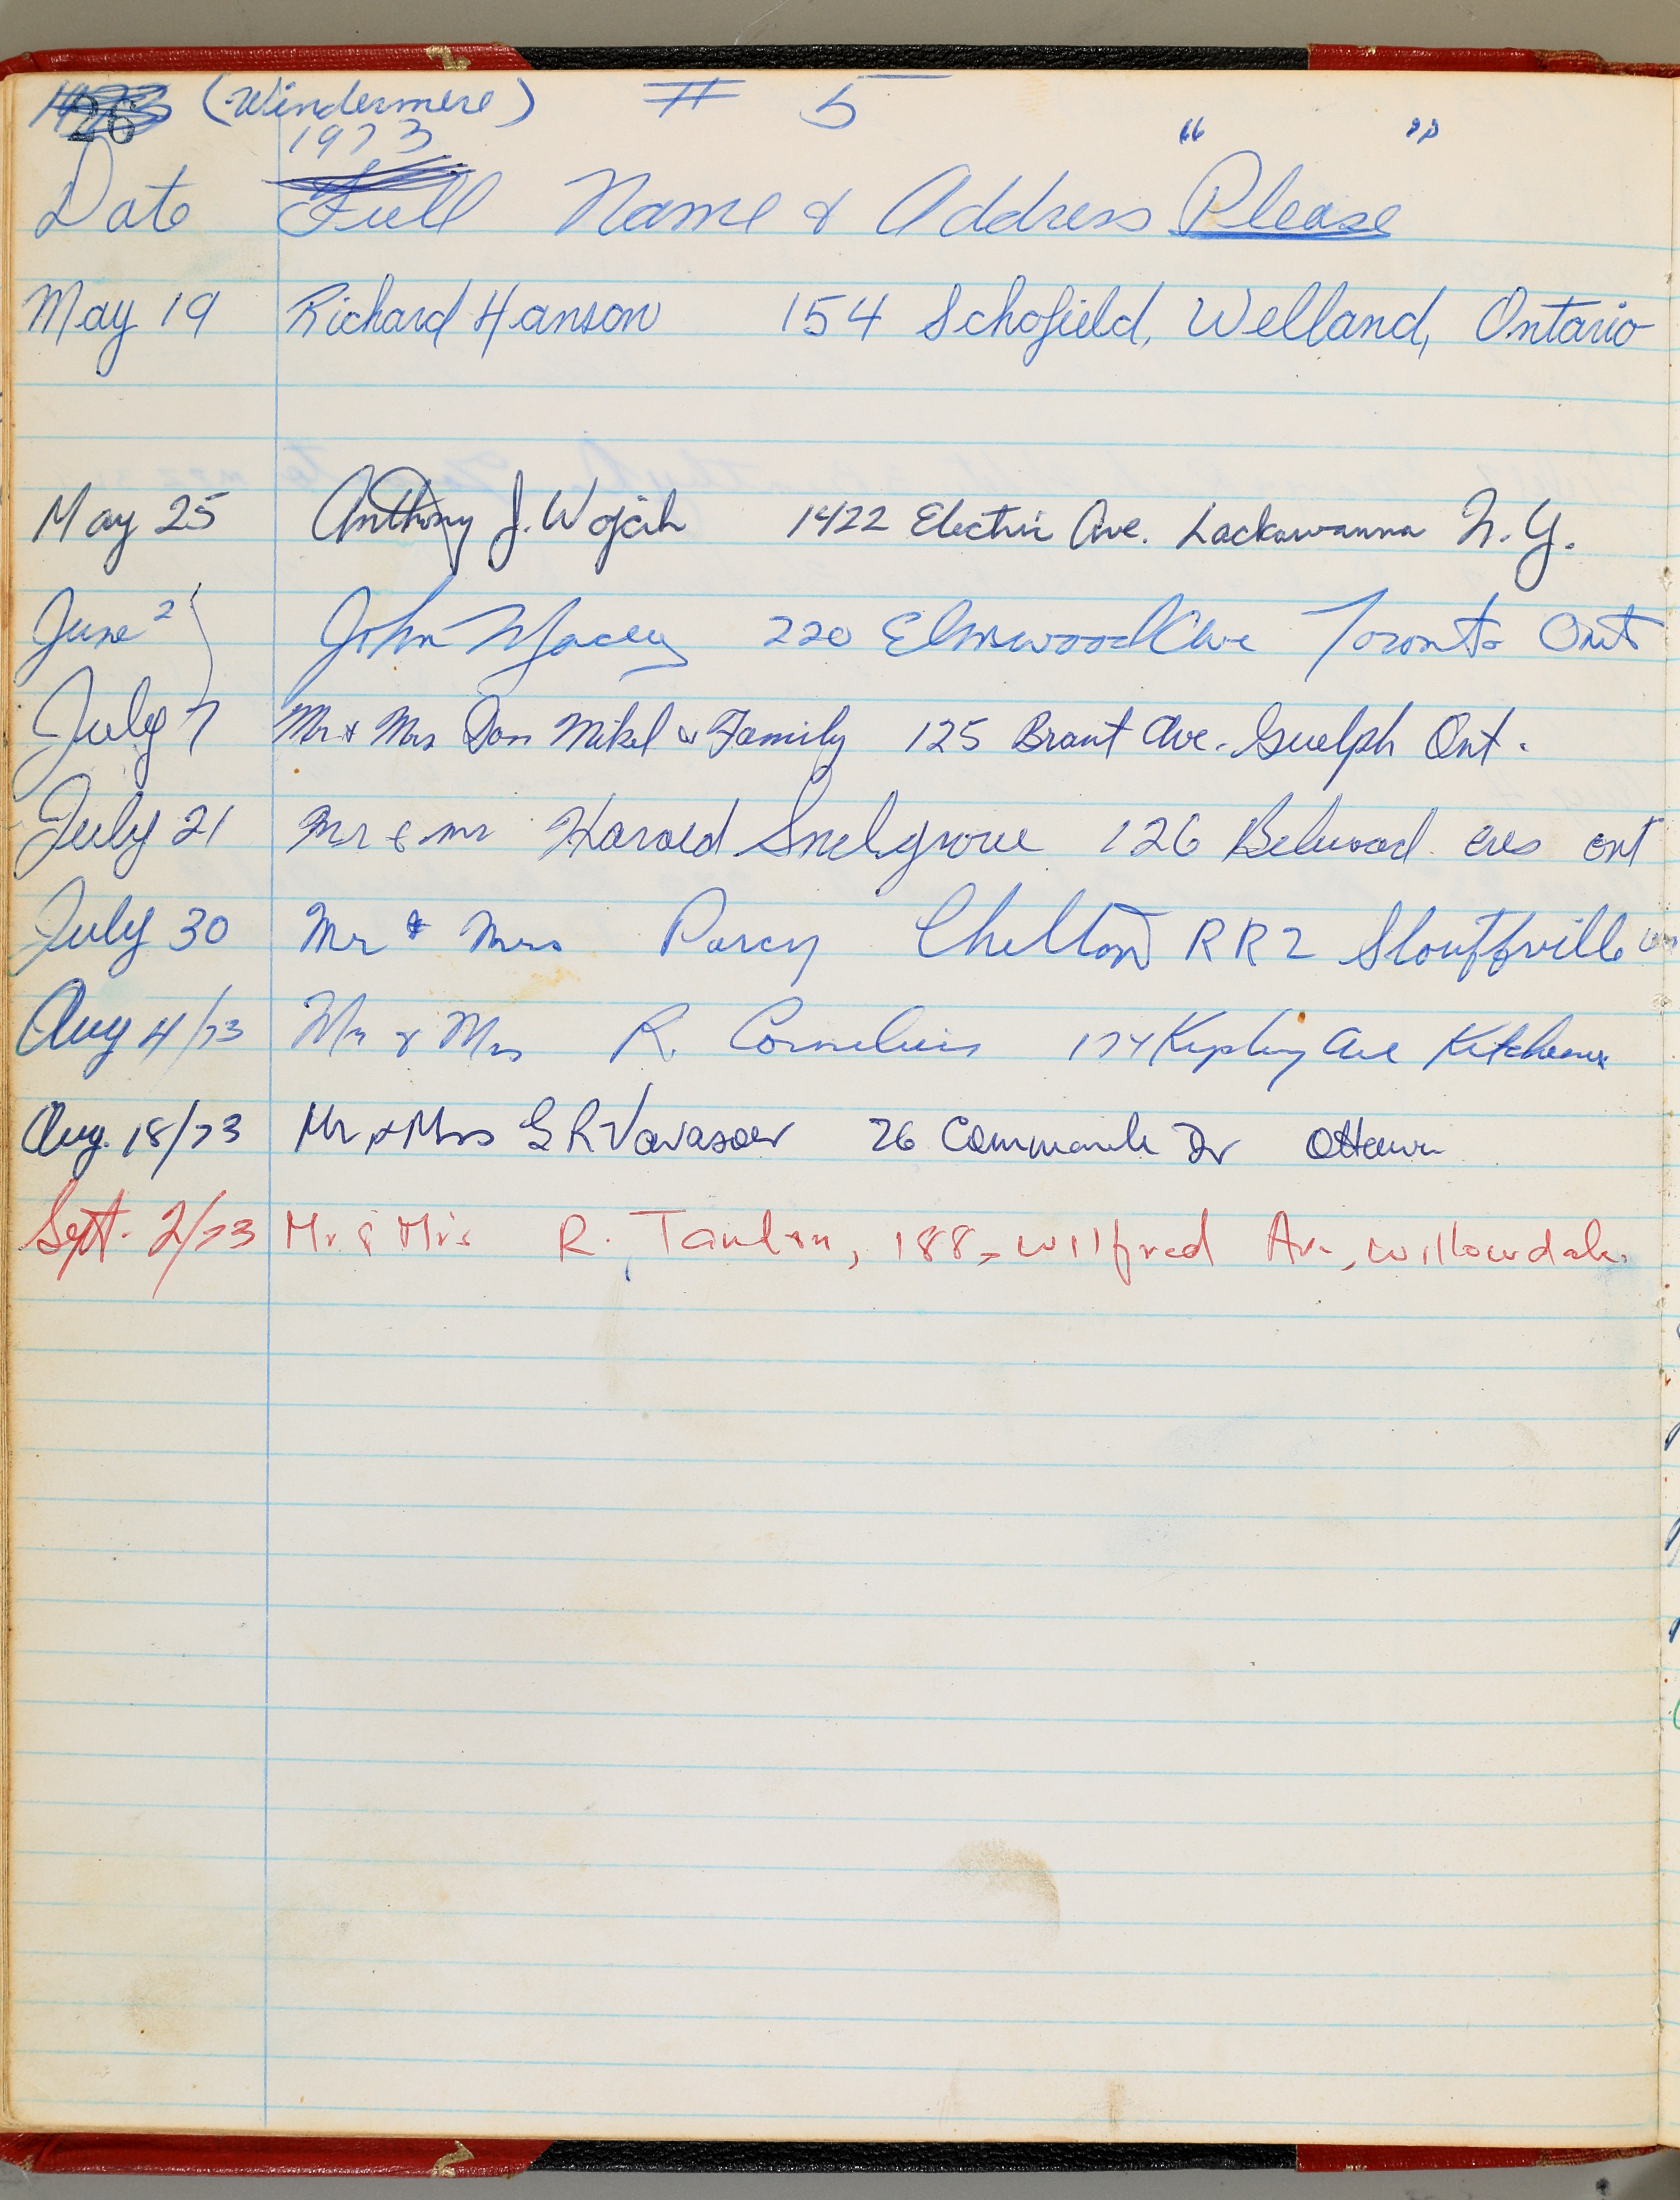 26 (Windermere) # 5
1973
Date Full Name & Address "Please"
May 19 Richard Hanson 154 Schofield, Welland, Ontario
May 25 Anthony J. Wojcik 1422 Electric Ave. Lackawanna N.Y.
June 2 John Macey 220 Elmwood Ave Toronto Ont
July 7 Mr & Mrs Don Mikel & Family 125 Brant Ave. Guelph Ont.
July 21 Mr & Mr Harold Snelgrove 126 Belwood cres ont
July 30 Mr & Mrs Percy Chelton RR2 Stouffville
Aug 4/73 Mr & Mrs R. Cornelius 174 Kipling Ave Kitchener
Aug. 18/73 Mr & Mrs G R Vavasour 26 Dr Ottawa
Sept. 2/73 Mr & Mrs R. 188, Wilfred Av., Willowdale.